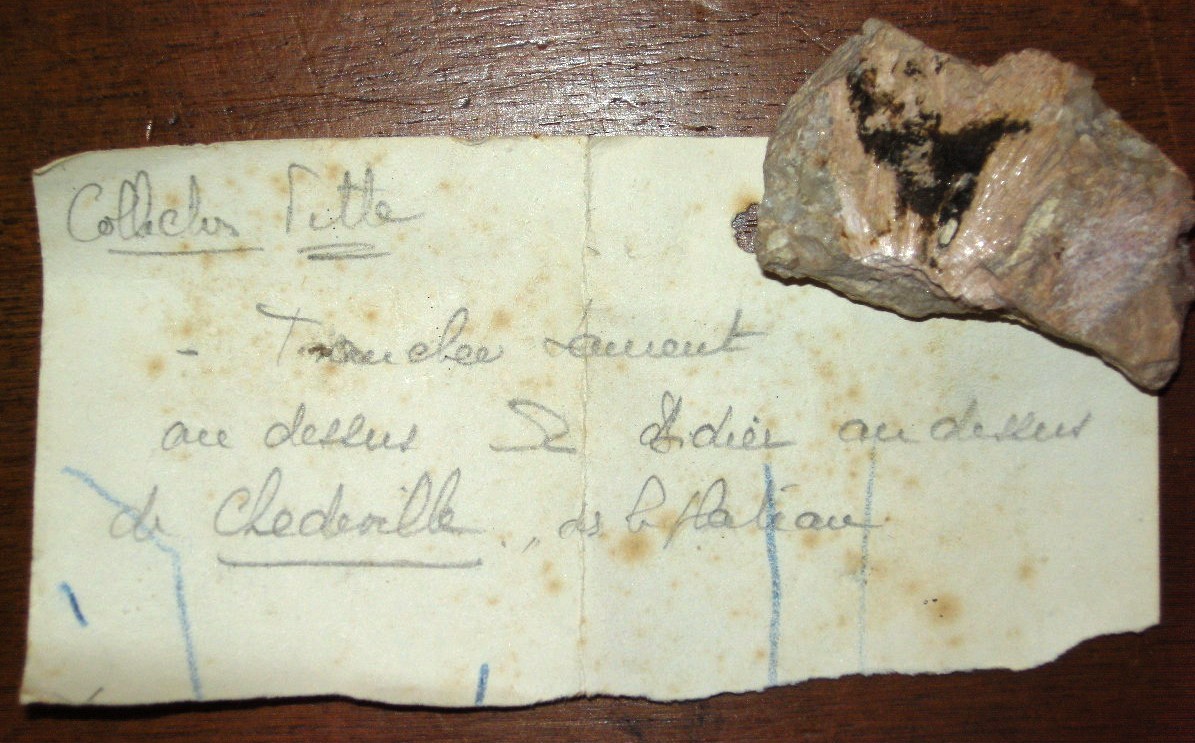 Collection Pitte
- Tranchee
au dessus St Didier au dessus
de Chedeville ds le plateau